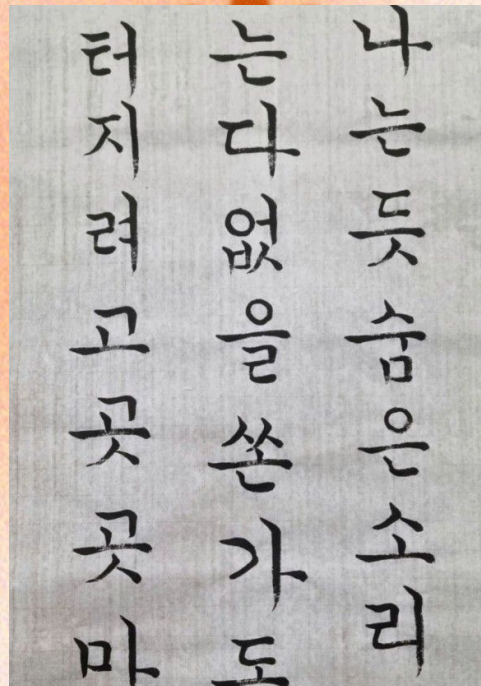 나는듯숨은소리
는다없을쏜가도
터지려고곳곳마